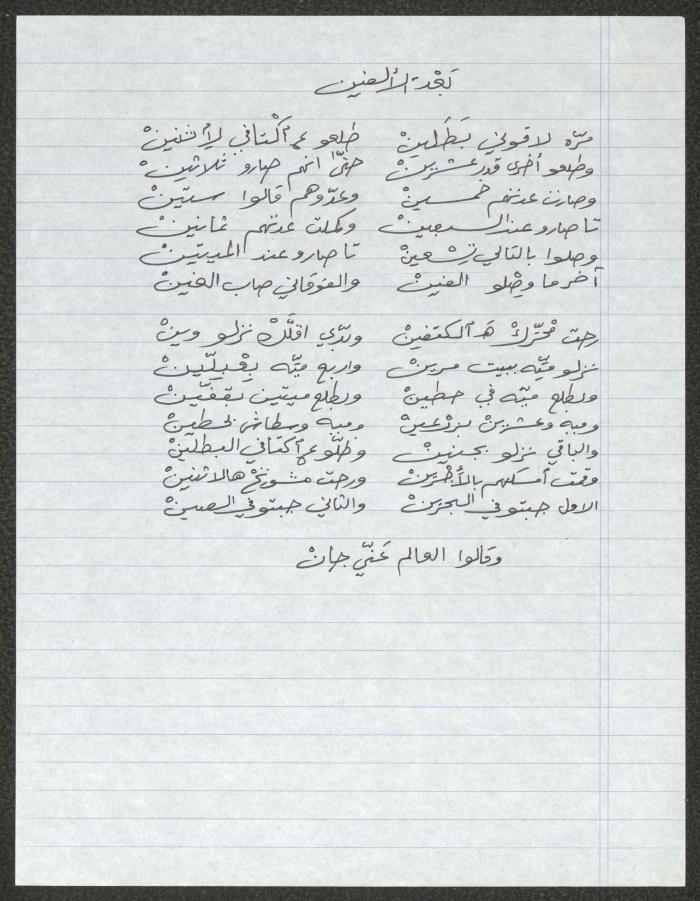 بَعْدة الألفين
مرّه لاقوني بَطَلينْ طلعو ع أكتافي لإثنينْ
وطلعو أخرى قدر عشرينْ حتّى انهم صارو ثلاثينْ
وصارت عدتهم خمسينْ وعدّوهم قالوا ستينْ
تا صارو عند السبعينْ وكملت عدتهم ثمانينْ
وصلوا بالتالي تسعينْ تا صارو عند الميتينْ
آخر ما وصْلو الفينْ والفوقاني صاب الغينْ
رحت محْرّكْ هَـ الكتفينْ وبدّي اقلَّكْ نزلو وينْ
نزلو ميّه ببيت مرينْ واربع ميّه بِعْبلّينْ
وبطلع ميّه في حطينْ وبطلع ميتين بقفّينْ
وميه وعشرين بزرْعينْ وميه وسطاش بحطينْ
والباقي نزلو بجنينْ وظلّو ع أكتافي البطلينْ
وقفت أمسكهم بالأَجْرينْ ورحت مشونحْ هالاثنينْ
الاول جبتو في البحرينْ والثاني جبتو في الصينْ
وقالوا العالم عَنّي جانْ